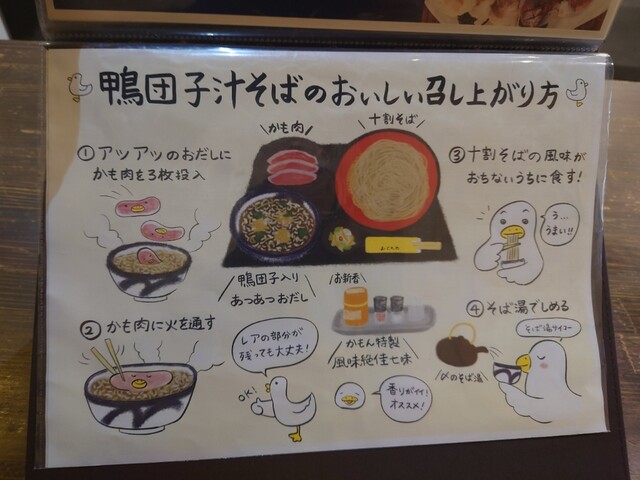 鴨団子汁そばのおいしい召し上がり方
①アツアツのおだしに
かも肉を3枚投入
かも肉
十割そば
③十割そばの風味が
おちないうちに食す!
う…
うまい!!
鴨団子入り
あつあつおだし
お新香
②かも肉に火を通す
レアの部分が
残っても大丈夫!
OK!
かもん特製
風味絶佳七味
香りがイイ!
オススメ!
④そば湯でしめる
そば湯サイコー
〆のそば湯